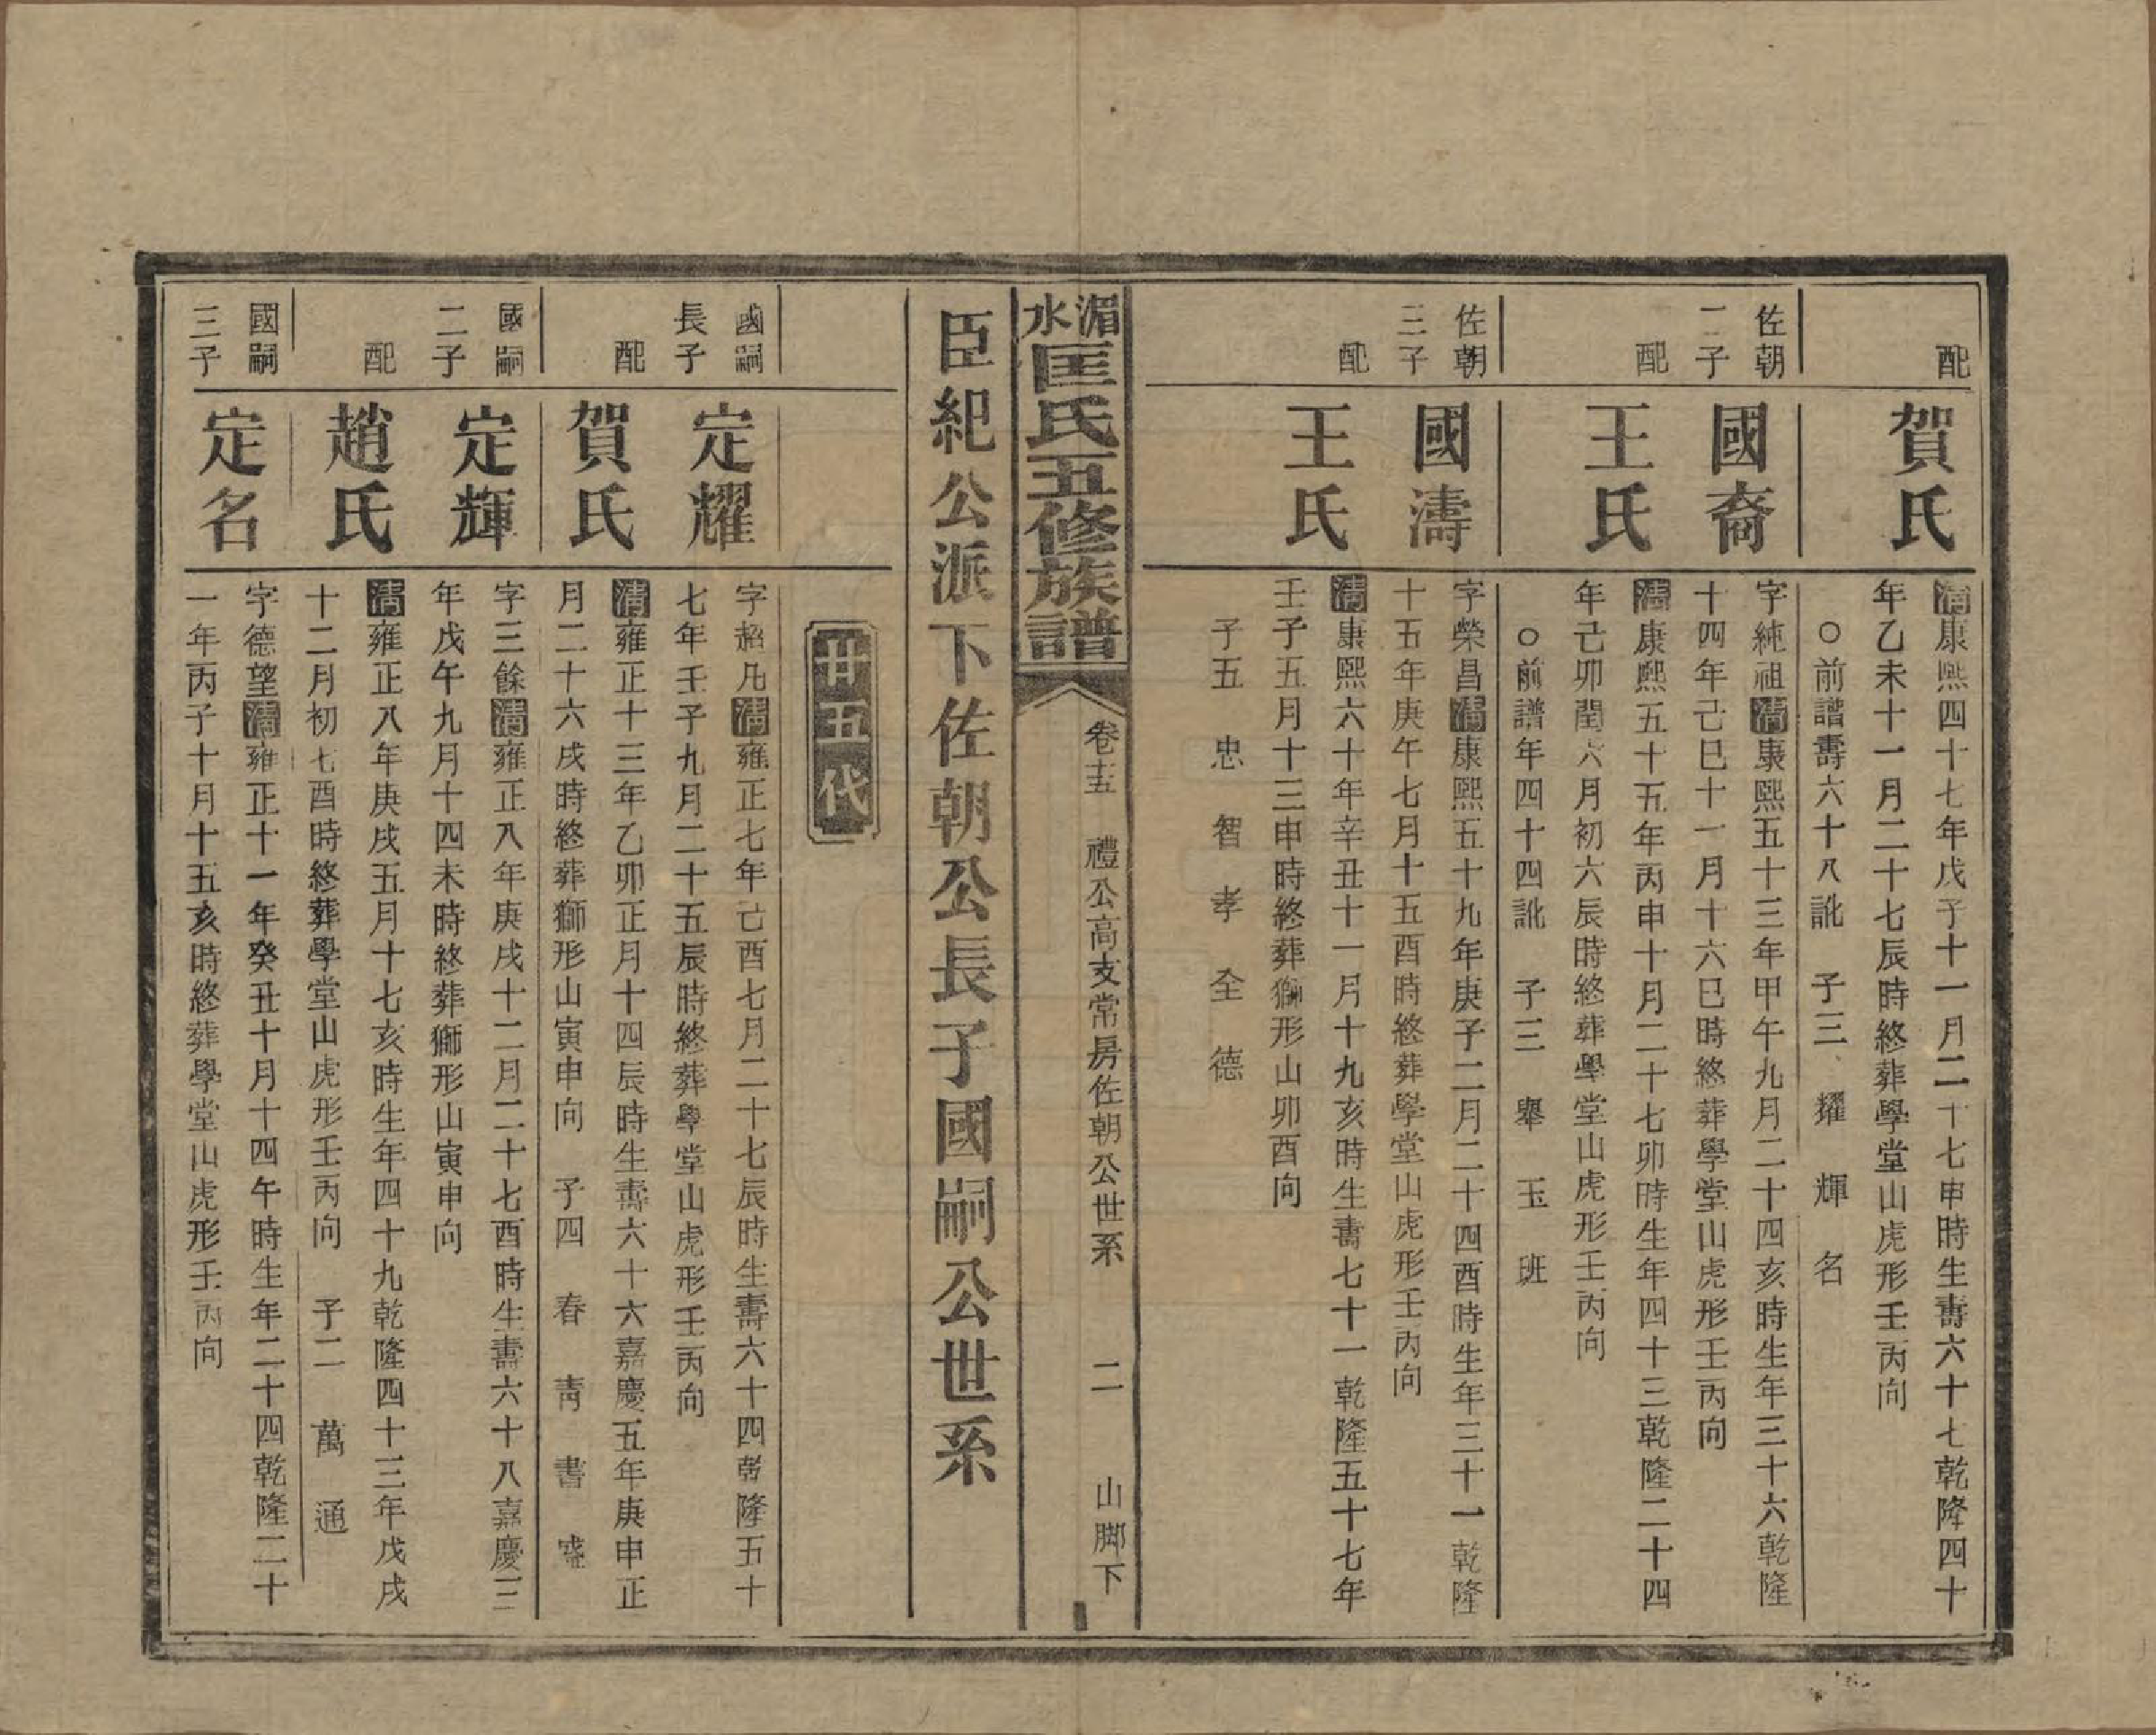 配
賀氏
清康熙四十七年戊子十一月二十七申時生壽六十七乾隆四十
年乙未十一月二十七辰時終葬學堂山虎形壬丙向
○前譜壽六十八訛　子三　耀　輝　名
佐朝
二子
國裔
字純祖清康熙五十三年甲午九月二十四亥時生年三十六乾隆
十四年己巳十一月十六巳時終葬學堂山虎形壬丙向
配
王氏
清康熙五十五年丙申十月二十七卯時生年四十三乾隆二十四
年己卯閏六月初六辰時終葬學堂山虎形壬丙向
○前譜年四十四訛　子三　舉　玉　班
佐朝
三子
國濤
字榮昌清康熙五十九年庚子二月二十四酉時生年三十一乾隆
十五年庚午七月十五酉時終葬學堂山虎形壬丙向
配
王氏
清康熙六十年辛丑十一月十九亥時生壽七十一乾隆五十七年
壬子五月十三申時終葬獅形山卯酉向
子五　忠　智　孝　全　德
湄水匡氏五修族譜
卷十五　禮公高支常房佐朝公世系　二　山脚下
臣紀公派下佐朝公長子國嗣公世系
廿五代
國嗣
長子
定耀
字超凡清雍正七年己酉七月二十七辰時生壽六十四乾隆五十
七年壬子九月二十五辰時終葬學堂山虎形壬丙向
配
賀氏
清雍正十三年乙卯正月十四辰時生壽六十六嘉慶五年庚申正
月二十六戌時終葬獅形山寅申向　子四　春　青　書　盛
國嗣
二子
定輝
字三餘清雍正八年庚戌十二月二十七酉時生壽六十八嘉慶三
年戊午九月十四未時終葬獅形山寅申向
配
趙氏
清雍正八年庚戌五月十七亥時生年四十九乾隆四十三年戊戌
十二月初七酉時終葬學堂山虎形壬丙向　子二　萬　通
國嗣
三子
定名
字德望清雍正十一年癸丑十月十四午時生年二十四乾隆二十
一年丙子十月十五亥時終葬學堂山虎形壬丙向